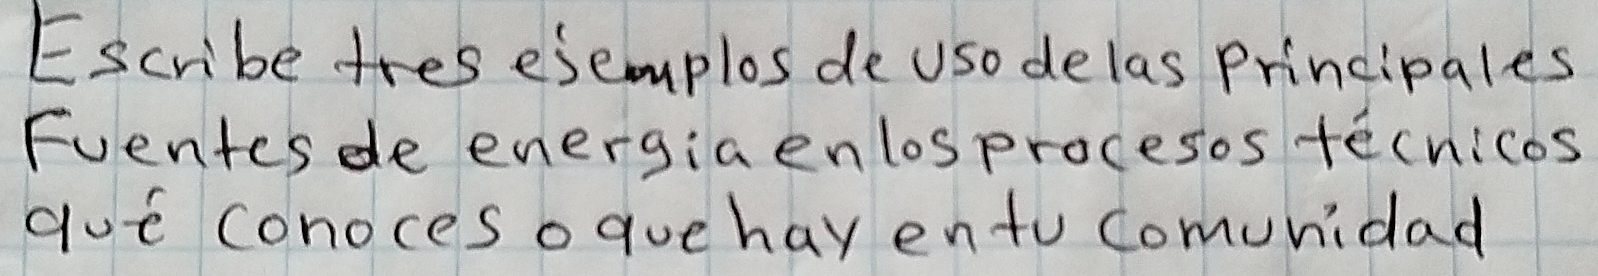 Escribe tres ejemplos de uso de las principales
Fuentes de energia en los procesos técnicos
qué conoces o que hay en tu comunidad